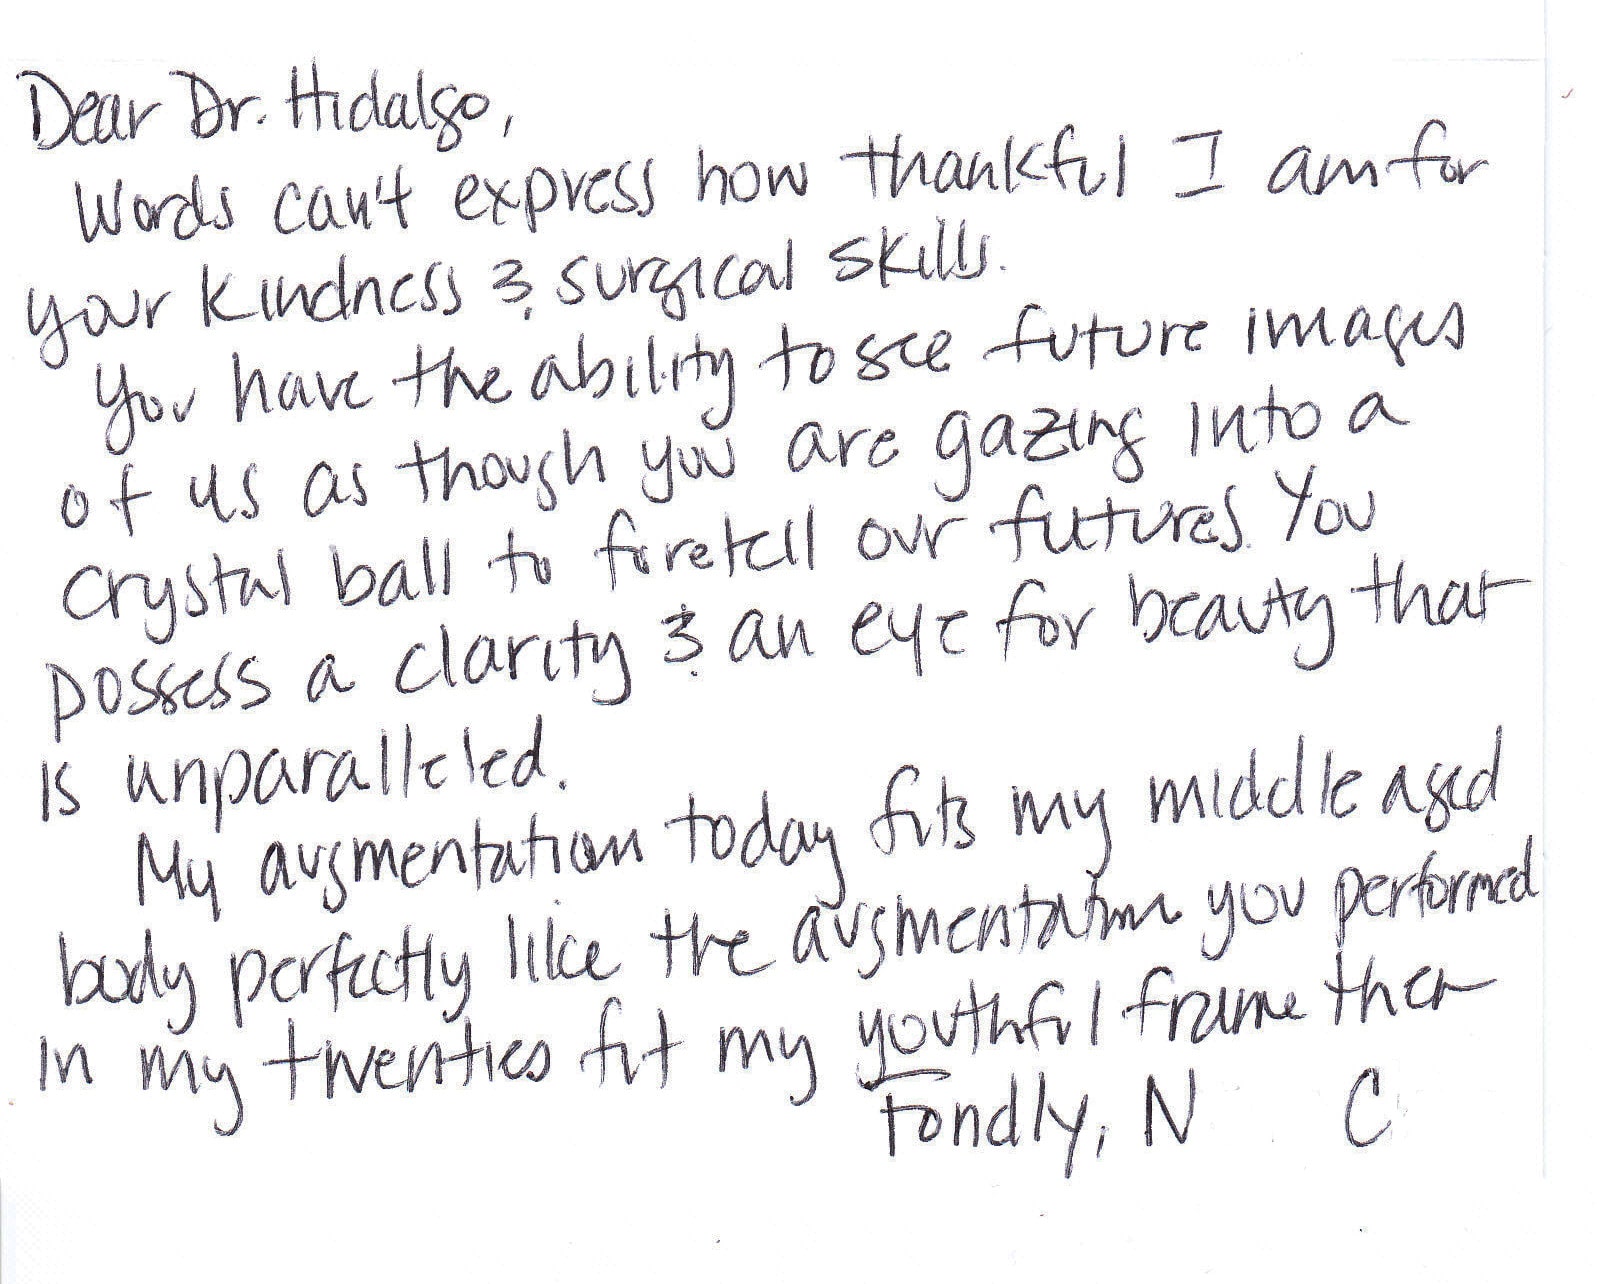 Dear Dr. Hidalgo,
Words can't express how thankful I am for
your kindness & surgical skills.
You have the ability to see future images
of us as though you are gazing into a
crystal ball to foretell our futures. You
possess a clarity & an eye for beauty that
is unparalleled.
My augmentation today fits my middle aged
body perfectly like the augmentation you performed
in my twenties fit my youthful frame then
Fondly, N C